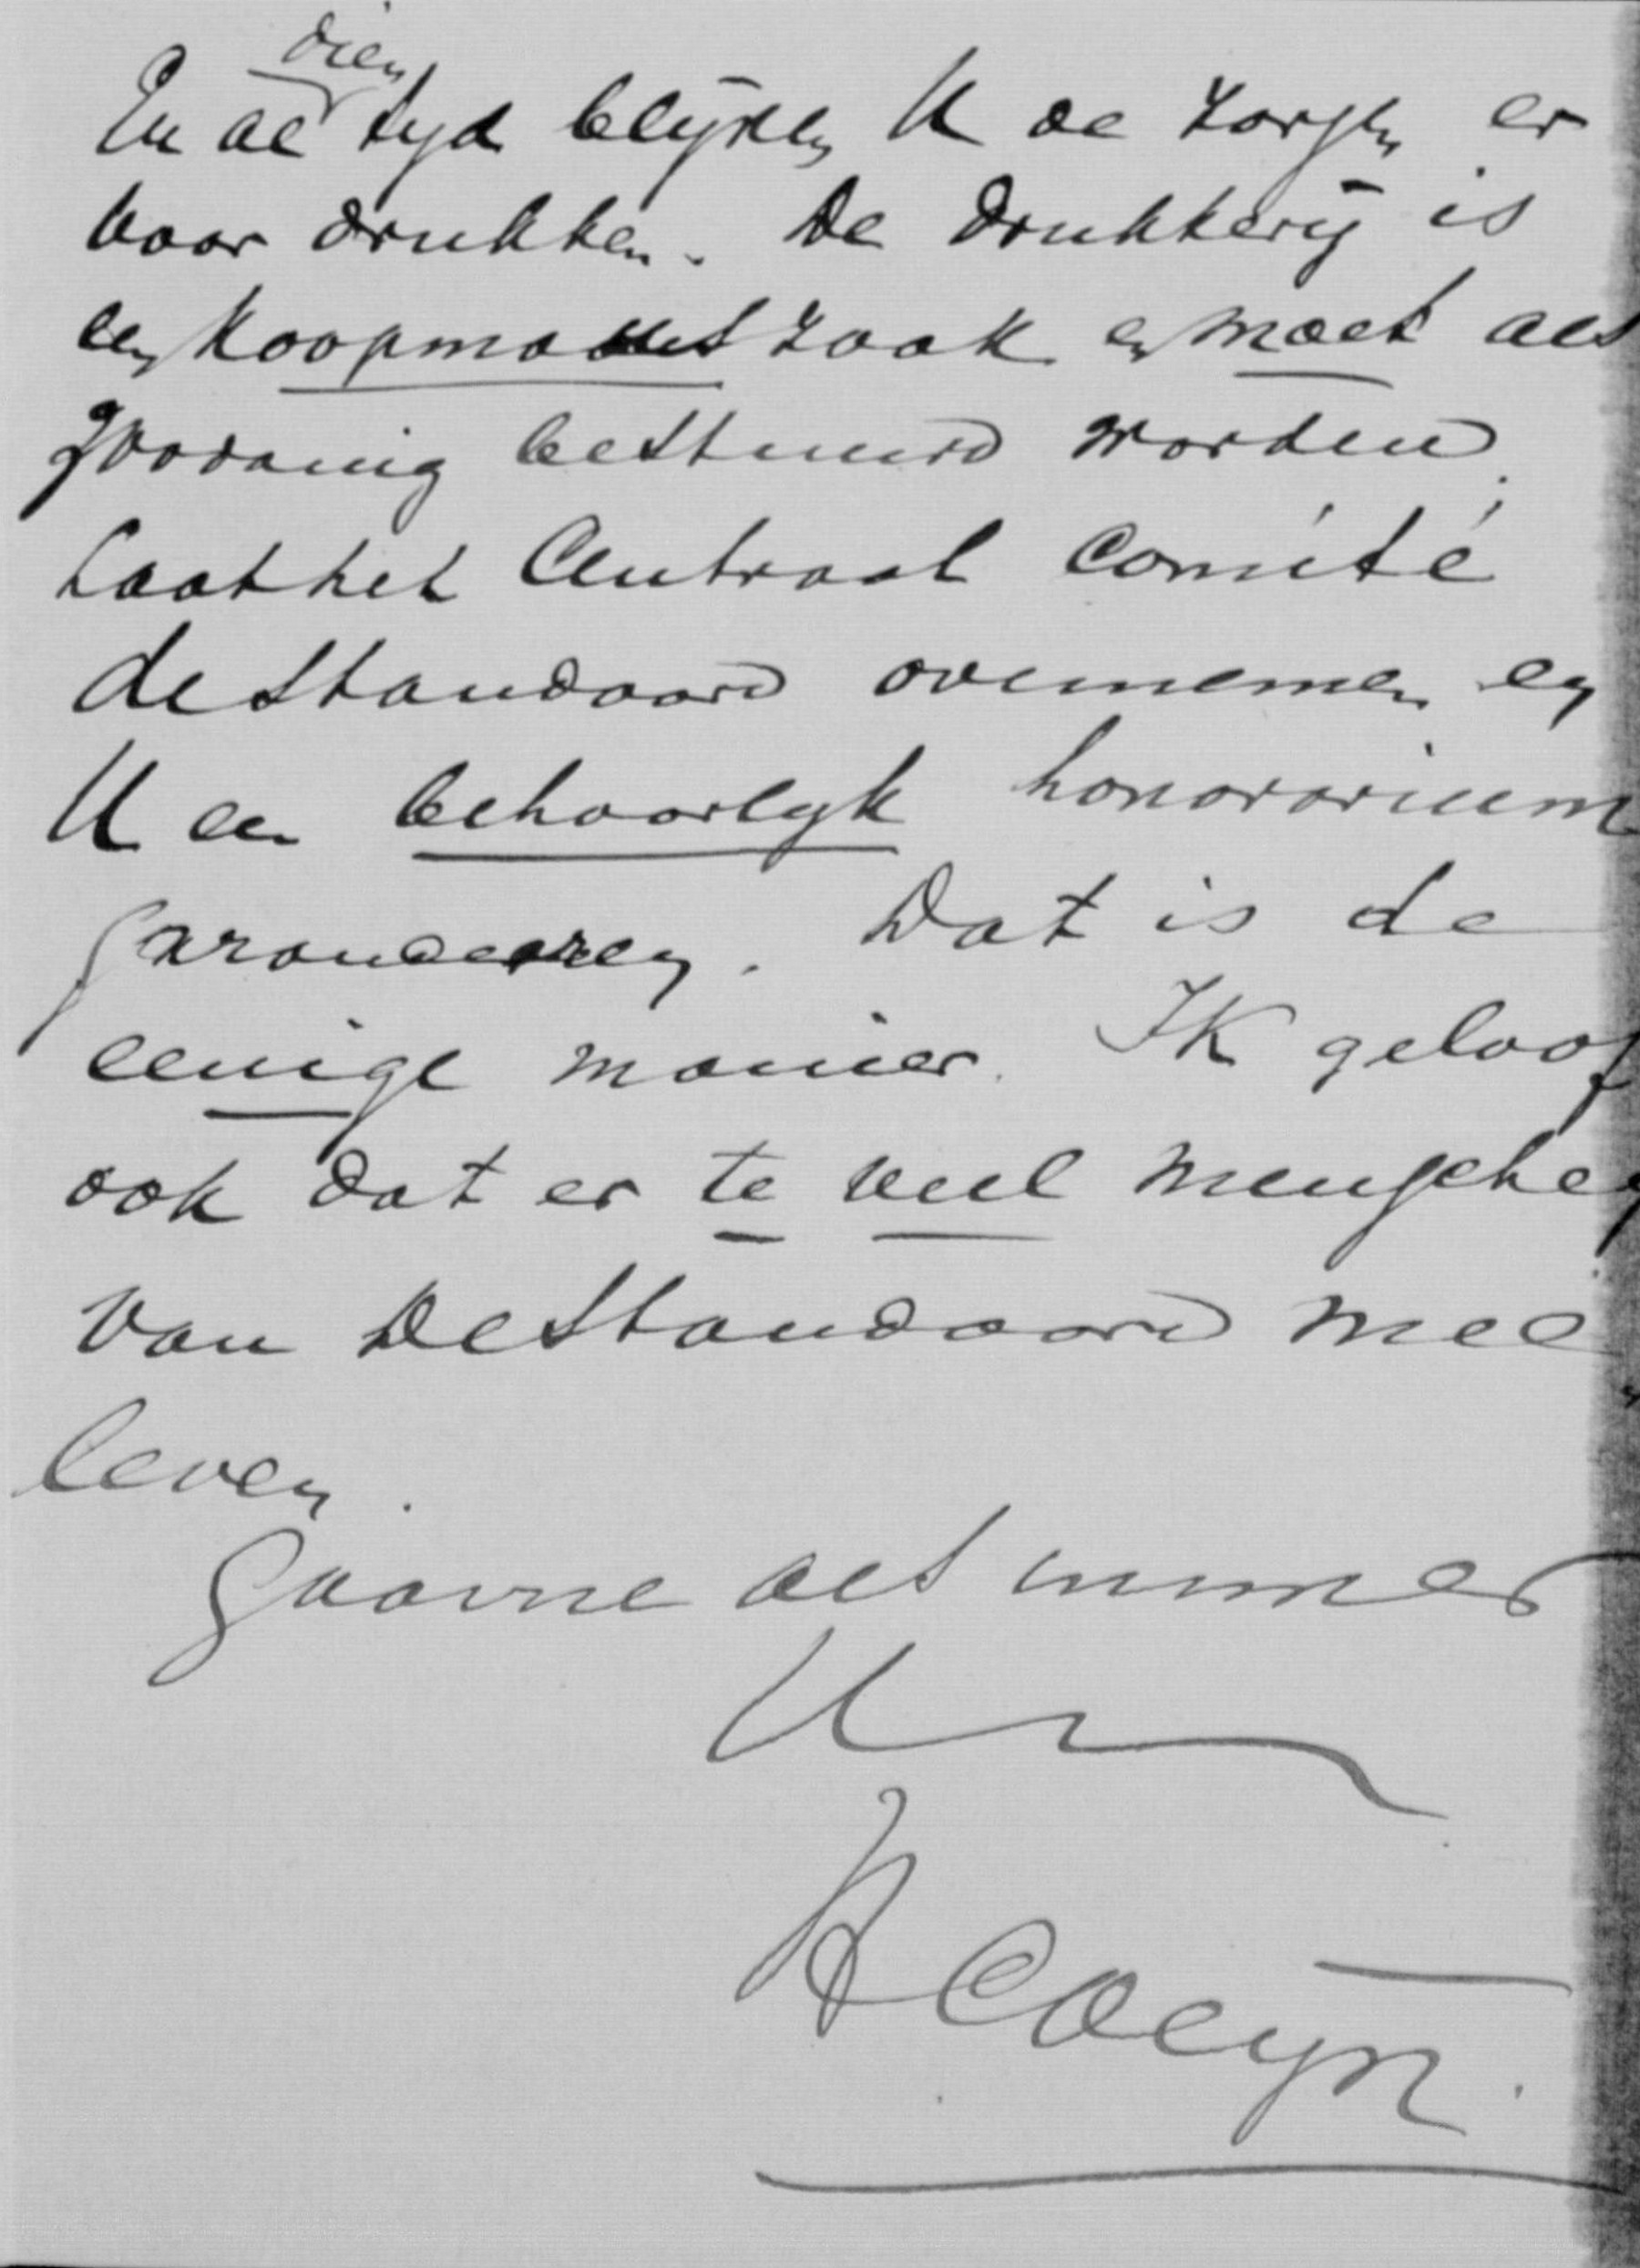 dien
En al tyd blijven U de zorgen er
voor drukken. De Drukkerij is
een Koopmanszaak en moet als
zoodanig bestuurd worden.
Laat het Centraal Comité
de Standaard overnemen en
U een behoorlyk honorarium
garandeeren. Dat is de
eenige manier. Ik geloof
ook dat er te veel menschen
van De Standaard mee
leven.
Gaarne als immer
Uw
HColijn.